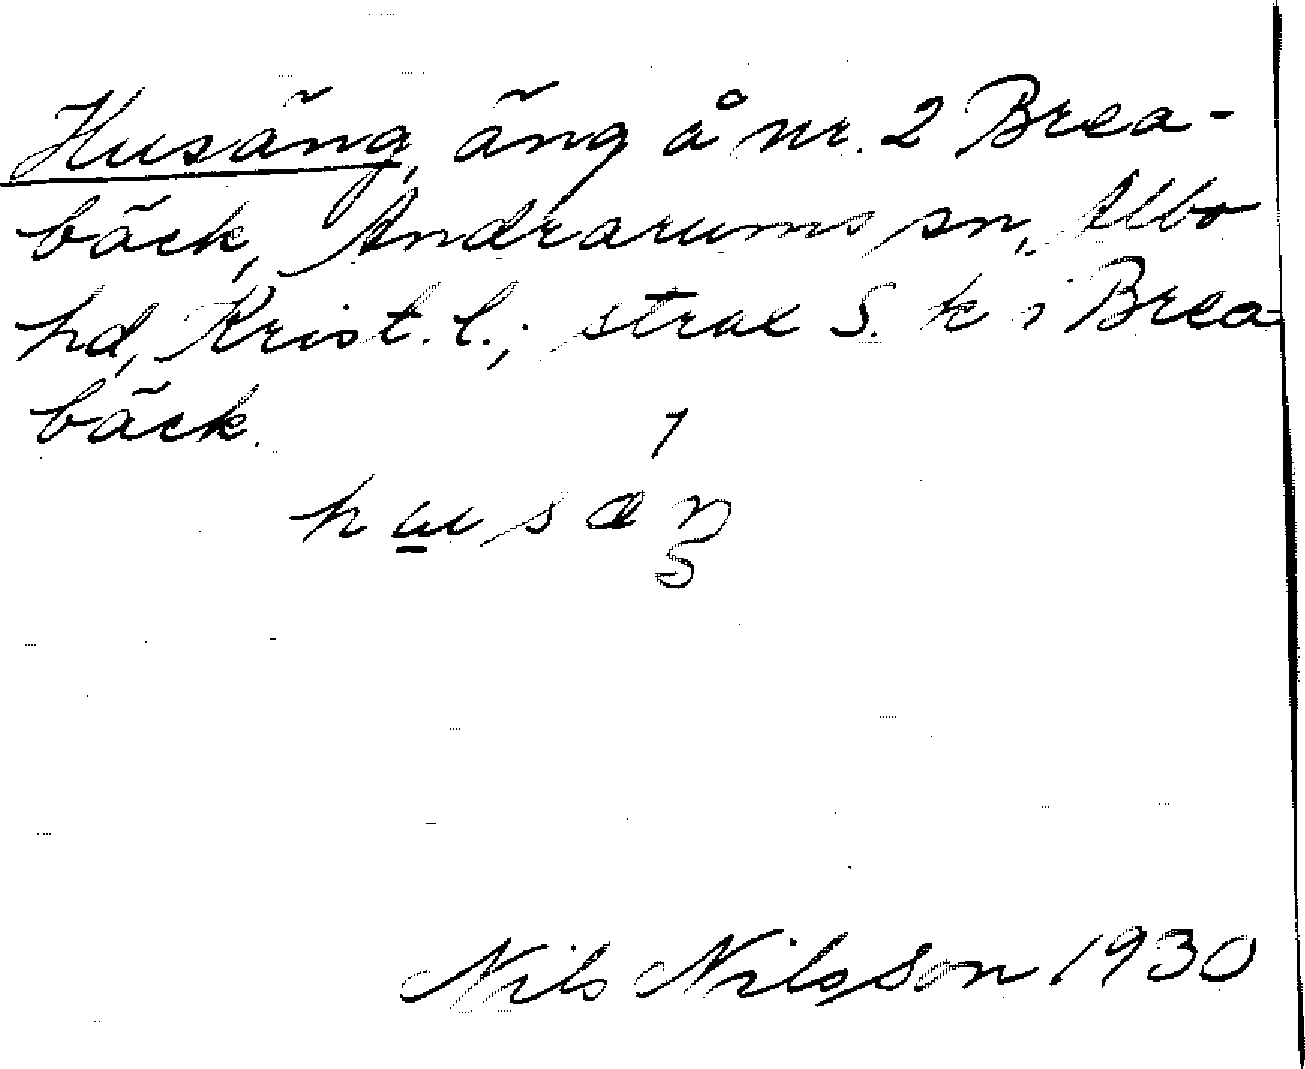 Husäng, äng å nr. 2 Brea-
bäck, Andrarums sn, Albo
hd, Krist. l.; strax S. k i Brea-
bäck.
husæŋ
Nils Nilsson 1930